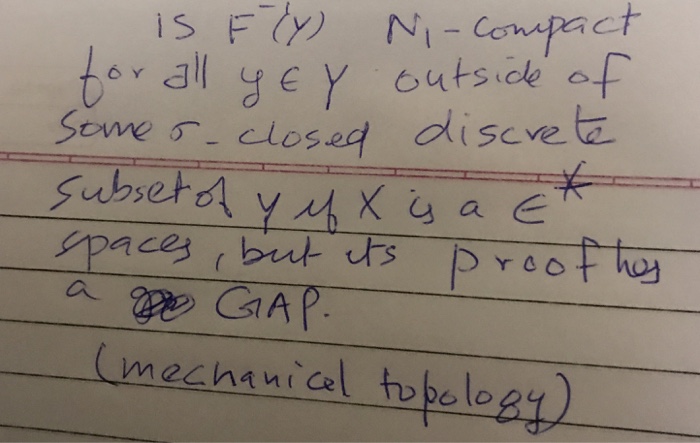 is F⁻¹(y) N₁-compact
for all y ∈ Y outside of
some σ-closed discrete
subset of Y if X is a ∈*
spaces, but its proof has
a GAP.
(mechanical topology)